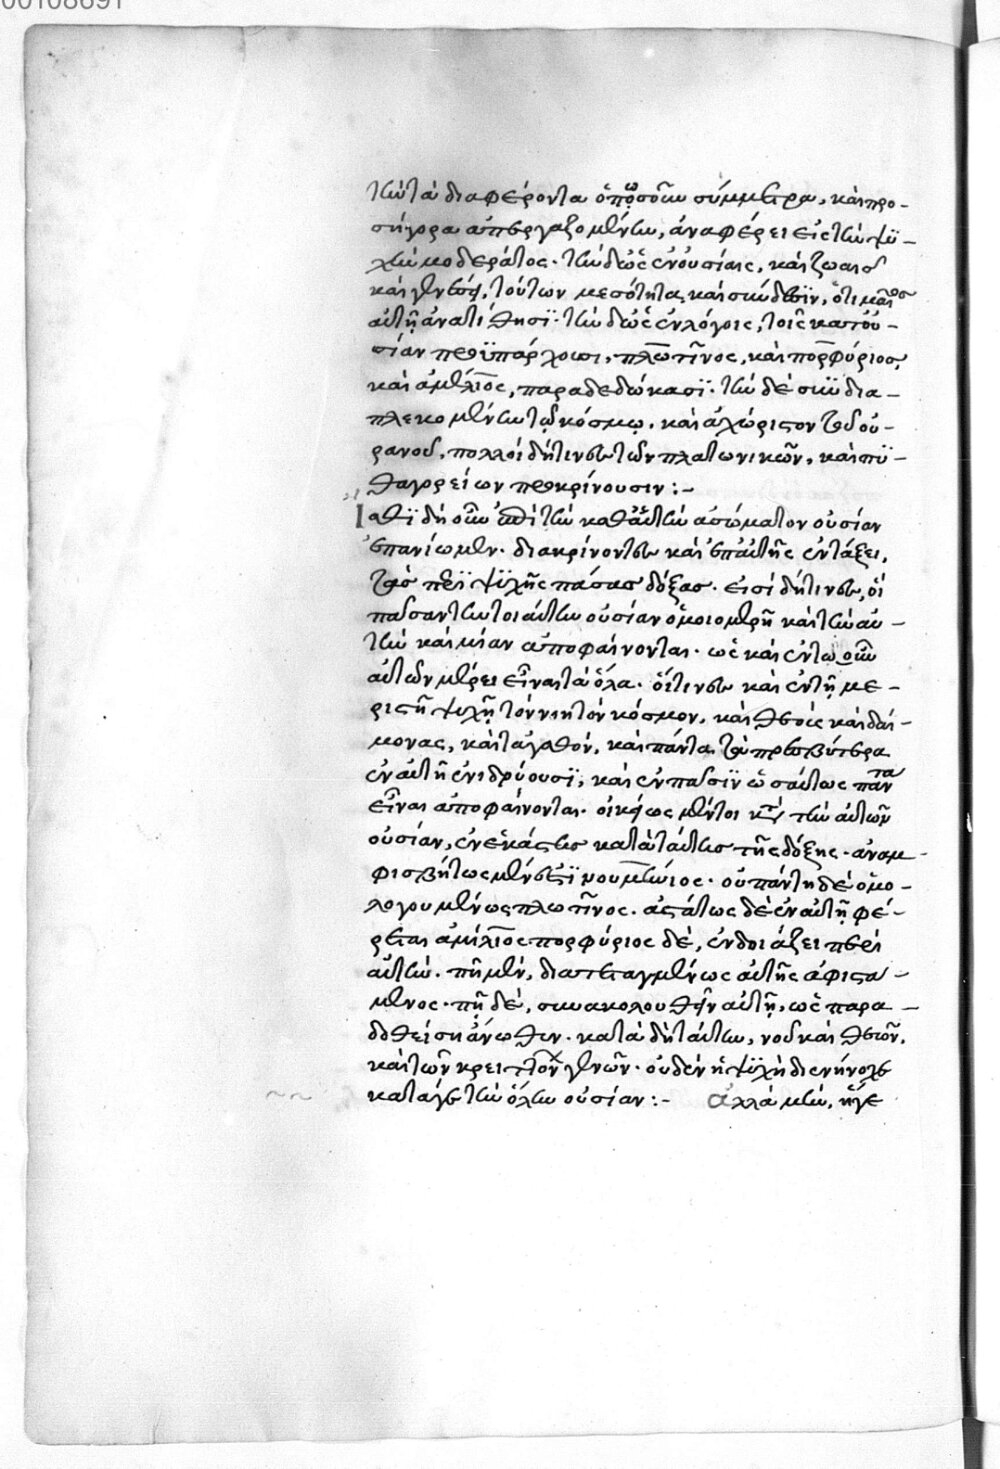 00108691
τὴν τὰ διαφέροντα ὁπωσοῦν σύμμετρα, καὶ προ-
σήγορα ἀπεργαζομένην, ἀναφέρει εἰς τὴν ψυ-
χὴν μοδεράτος. τὴν δ' ὡς ἐν οὐσίαις, καὶ ζωαῖς
καὶ γενέσει, τούτων μεσότητα καὶ σύνδεσιν, ὅτι
αὐτῇ ἀνατίθησι. τὴν δ' ὡς ἐν λόγοις, τοῖς κατ' οὐ-
σίαν προϋπάρχουσι, πλωτῖνος, καὶ πορφύριος,
καὶ ἀμέλιος, παραδεδώκασι. τὴν δὲ συνδια-
πλεκομένην τῷ κόσμῳ, καὶ ἀχώριστον τοῦ οὐ-
ρανοῦ, πολλοὶ δή τινες τῶν πλατωνικῶν, καὶ πυ-
θαγορείων προκρίνουσιν:-
Ἴθι δὴ οὖν ἐπὶ τὴν καθ' αὑτὴν ἀσώματον οὐσίαν
ἐπανίωμεν. διακρίνοντες καὶ ἐπ' αὐτῆς ἐν τάξει,
τὰς περὶ ψυχῆς πάσας δόξας. εἰσὶ δή τινες, οἳ
πᾶσαν τὴν τοιαύτην οὐσίαν ὁμοιομερῆ καὶ τὴν αὐ-
τὴν καὶ μίαν ἀποφαίνονται. ὡς καὶ ἐν τῳοῦν
αὐτῶν μέρει εἶναι τὰ ὅλα. οἵτινες καὶ ἐν τῇ με-
ριστῇ ψυχῇ τὸν νοητὸν κόσμον, καὶ θεοὺς καὶ δαί-
μονας, καὶ τἀγαθὸν, καὶ πάντα τὰ πρεσβύτερα
ἐν αὐτῇ ἐνιδρύουσι, καὶ ἐν πᾶσιν ὡσαύτως πάντα
εἶναι ἀποφαίνονται. οἰκείως μέντοι κατὰ τὴν αὐτῶν
οὐσίαν, ἐν ἑκάστοις κατὰ ταύτης τῆς δόξης. ἀναμ-
φισβήτως μέν ἐστι νουμήνιος. οὐ πάντη δὲ ὁμο-
λογουμένως πλωτῖνος. ἀστάτως δὲ ἐν αὐτῇ φέ-
ρεται ἀμέλιος πορφύριος δὲ, ἐνδοιάζει περὶ
αὐτήν. πῇ μὲν, διατεταγμένως αὐτῆς ἀφιστά-
μενος. πῇ δὲ, συνακολουθῶν αὐτῇ, ὡς παρα-
δοθείσῃ ἄνωθεν. κατὰ δὴ ταύτην, νοῦ καὶ θεῶν,
καὶ τῶν κρειττόνων γενῶν. οὐδὲν ἡ ψυχὴ διενήνοχε
κατά γε τὴν ὅλην οὐσίαν:- ἀλλὰ μὴν, ἥ γε